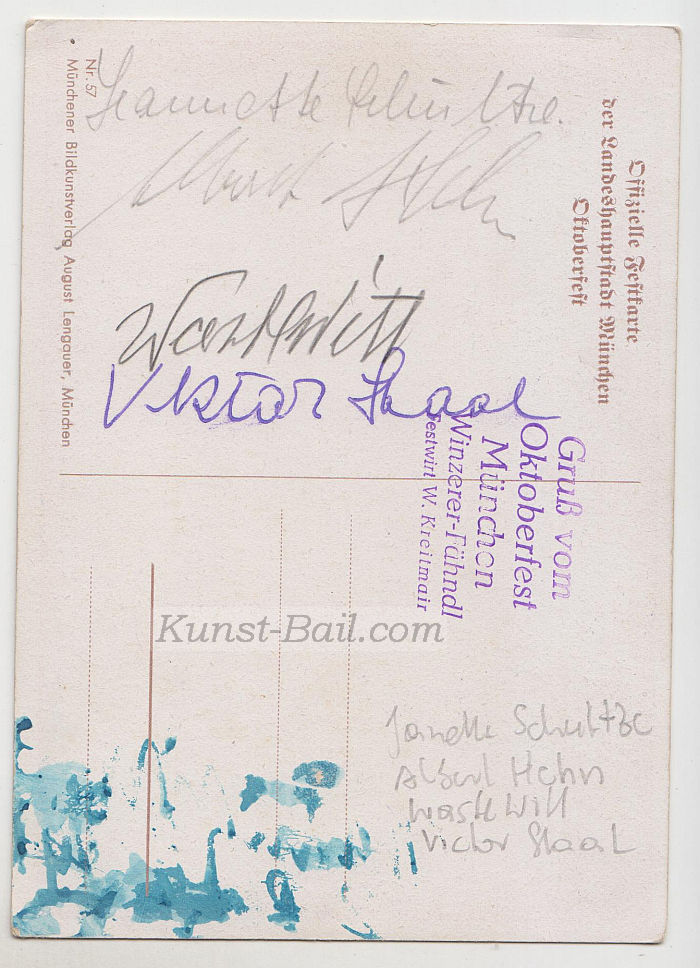 Nr. 57
Münchener Bildkunstverlag August Lengauer, München
Offizielle Festkarte
der Landeshauptstadt München
Oktoberfest
Jeannette Schultze.
Albert Hehn
Wastl Witt
Viktor Staal
Gruß vom
Oktoberfest
München
Winzerer-Fähndl
Festwirt W. Kreitmair
Kunst-Bail.com
Schultze
Albert Hehn
Wastl Witt
Victor Staal